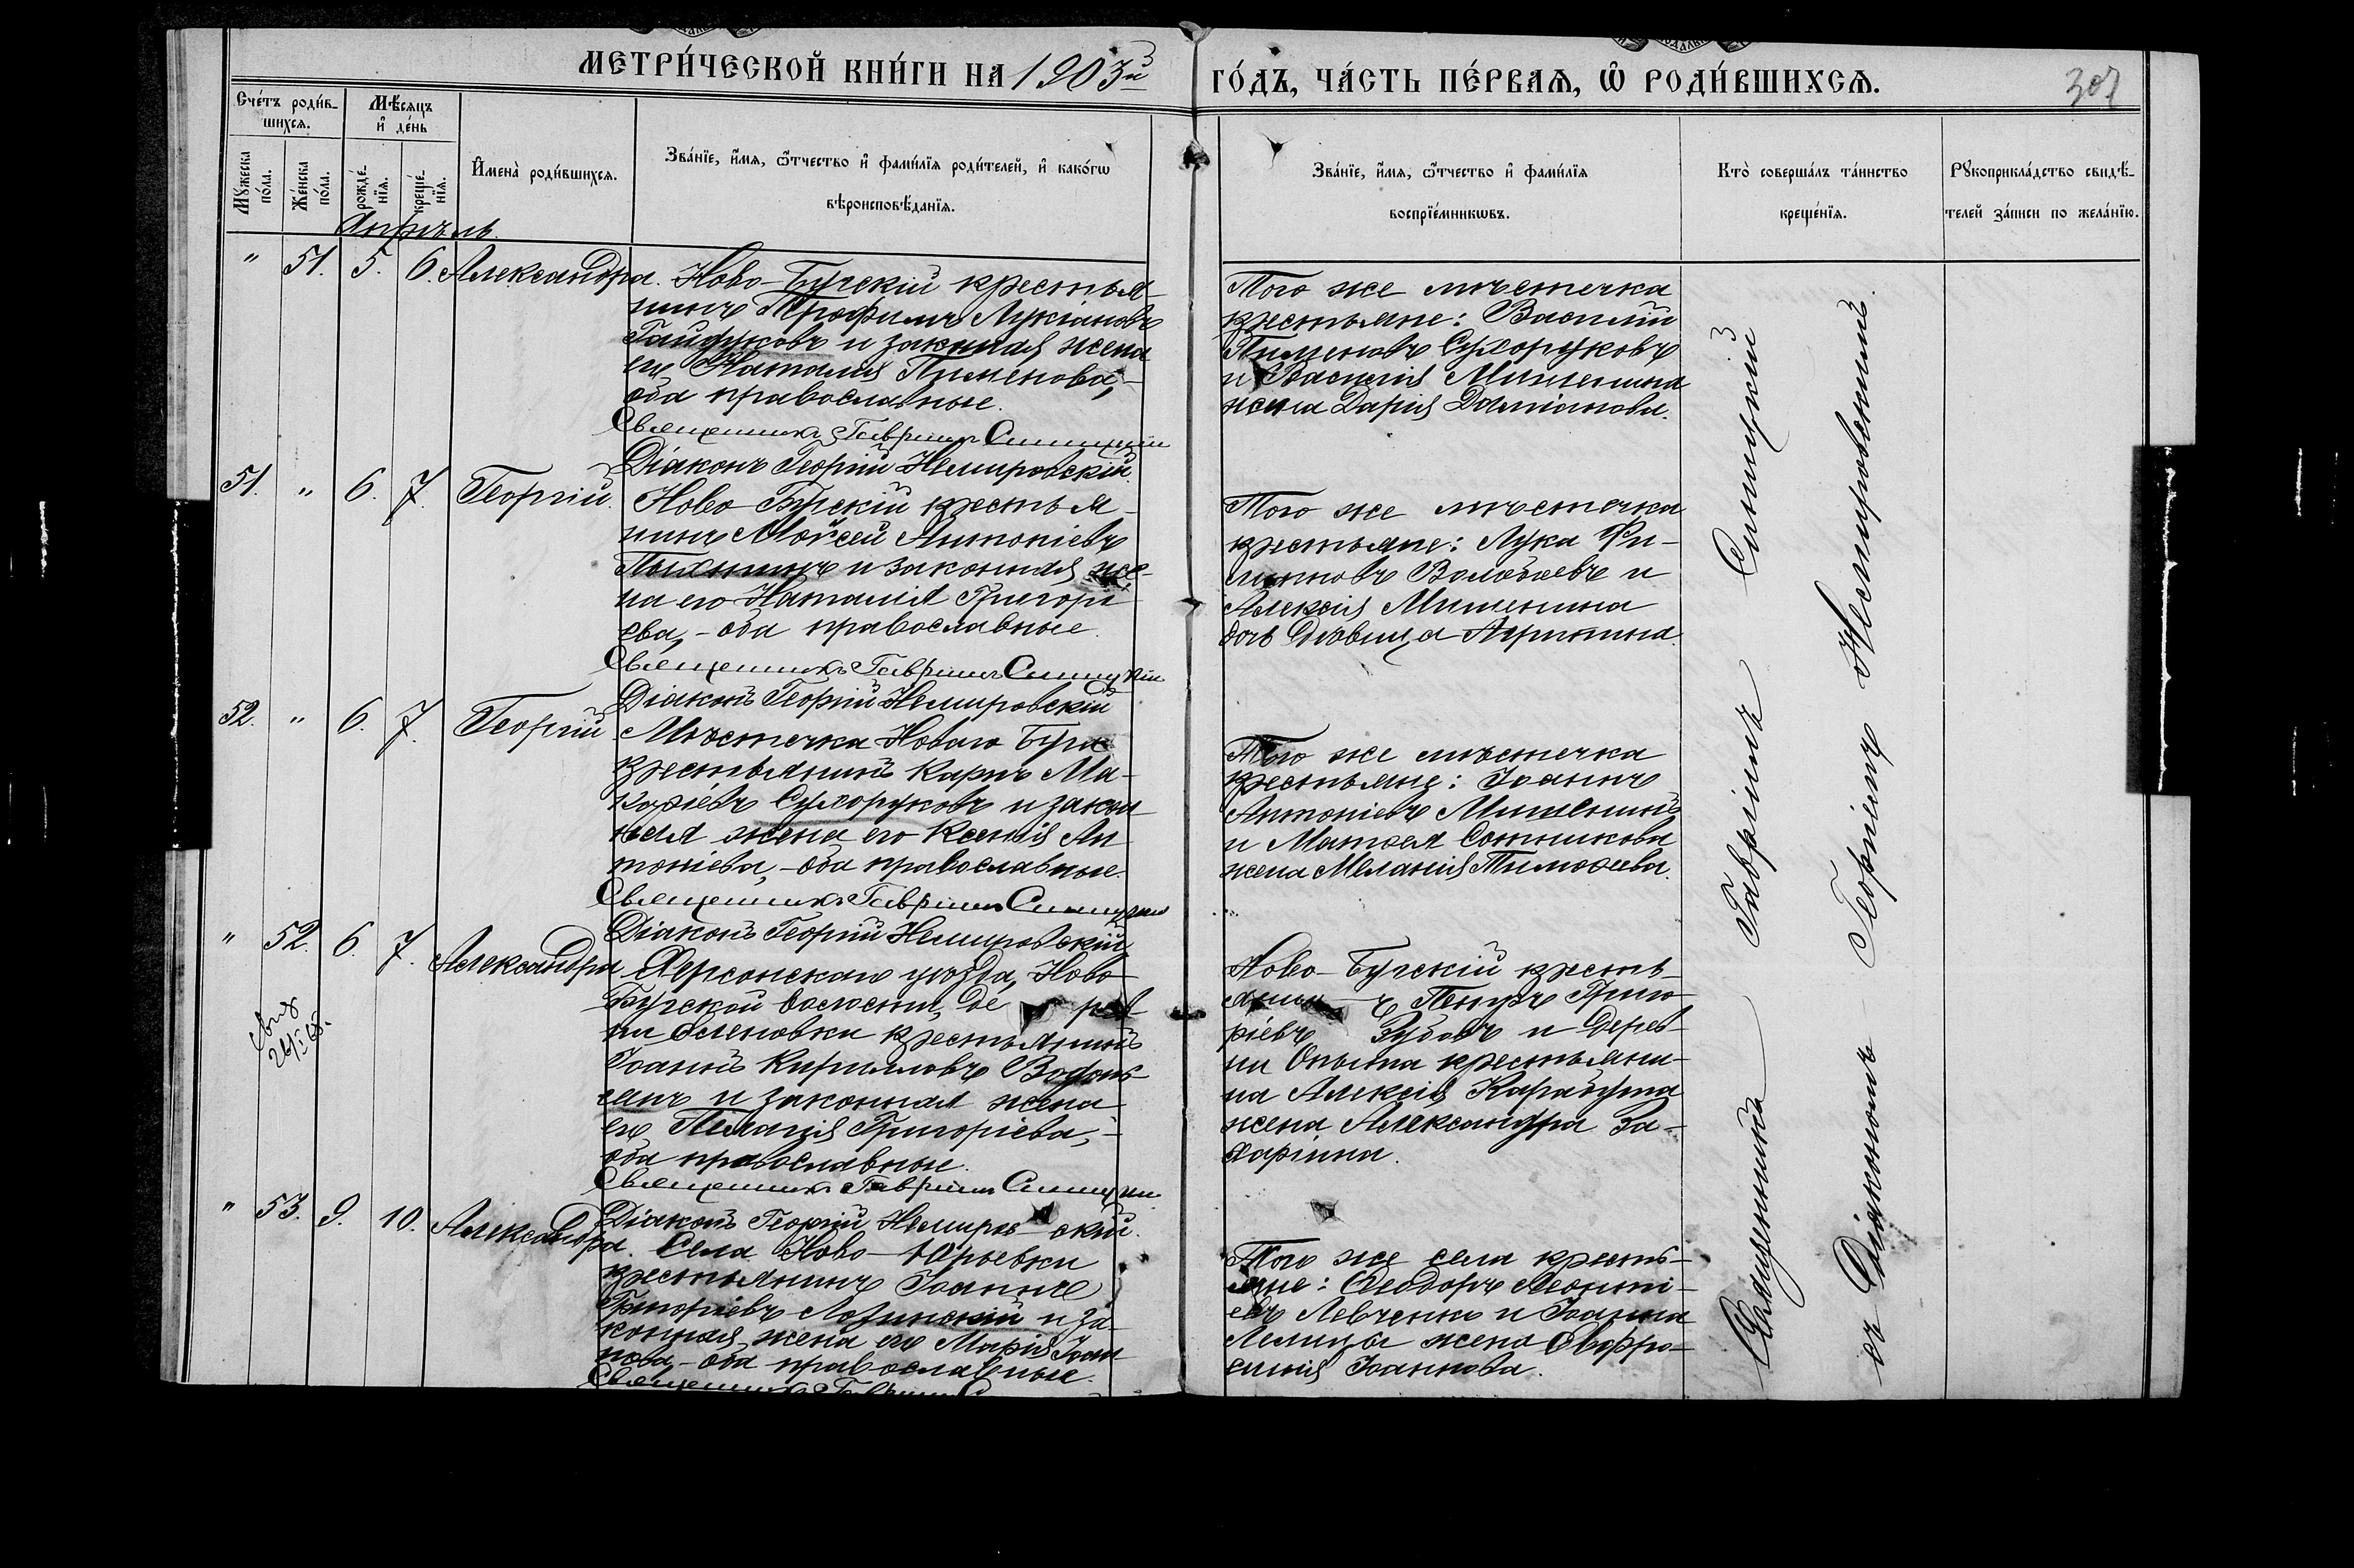 МЕТРИ́ЧЕСКОЙ КНИ́ГИ НА 1903й
ГО́ДЪ, ЧА́СТЬ ПЕ́РВАѦ, Ѡ РОДИ́ВШИХСѦ.
307
Сче́тъ роди́в-
шихсѧ.
Мѣ́сѧцъ
и҆ де́нь
Мꙋ́жеска
по́ла.
Же́нска
по́ла.
рожде́-
нїѧ.
креще́-
нїѧ.
И҆мена̀ роди́вшихсѧ.
Зва́нїе, и҆́мѧ, ѻ҆́тчество и҆ фами́лїѧ роди́телей, и҆ како́гѡ
вѣроисповѣ́данїѧ.
Зва́нїе, и҆́мѧ, ѻ҆́тчество и҆ фами́лїѧ
воспрїе́мникѡвъ.
Кто̀ соверша́лъ та́инство
креще́нїѧ.
Рꙋкоприкла́дство свидѣ́-
телей за́писи по жела́нїю.
Апрѣль.
" 51. 5. 6. Александра. Ново-Бугскій крестья-
нинъ Трофимъ Лукіановъ
Гайдуковъ и законная жена
его Наталія Пименова,-
оба православные.
Священникъ Гавріилъ Синицкій
Діаконъ Георгій Немировскій.
Того же мѣстечка
крестьяне: Василій
Пименовъ Сухоруковъ
и Василія Мишенина
жена Дарія Даміанова.
51. " 6. 7. Георгій. Ново-Бугскій крестья-
нинъ Моѵсей Антоніевъ
Пыхтинъ и законная же-
на его Наталія Григорі-
ева,-оба православные.
Священникъ Гавріилъ Синицкій
Діаконъ Георгій Немировскій
Того же мѣстечка
крестьяне: Лука Фи-
липповъ Волобоевъ и
Алексія Мишенина
дочь дѣвица Агрипина.
52. " 6. 7. Георгій Мѣстечка Новаго Буга
крестьянинъ Карпъ Ма-
каріевъ Сухоруковъ и закон-
ная жена его Ксенія Ан-
тоніева,-оба православные.
Священникъ Гавріилъ Синицкій
Діаконъ Георгій Немировскій
Того же мѣстечка
крестьяне: Іоаннъ
Антоніевъ Мишенинъ
и Матѳея Сотникова
жена Меланія Тимоѳеева.
" 52. 6. 7. Александра Херсонскаго уѣзда, Ново-
Бугской волости, де рев-
ни Еленовки крестьянинъ
Іоаннъ Кирилловъ
и законная жена
его Пелагія Григоріева,-
оба православные.
Священникъ Гавріилъ Синицкій
Діаконъ Георгій Немиров-скій.
Ново-Бугскій кресть-
янинъ Петръ Григо-
ріевъ Зубовъ и дерев-
ни крестьяни-
на Алексія Карабута
жена Александра За-
харіина.
" 53. 9. 10. Александра. Села Ново-Юрьевки
крестьянинъ Іоаннъ
Григоріевъ Лозинскій и за-
конная жена его Марія Іоан-
нова,-оба православные.
Священникъ Гавріилъ
Того же села кресть-
яне: Ѳеодоръ Леонті-
евъ Левченко и Іоанна
жена Евфро-
синія Іоаннова.
Священникъ Гавріилъ Синицкій
съ Діакономъ Георгіемъ Немировскимъ.